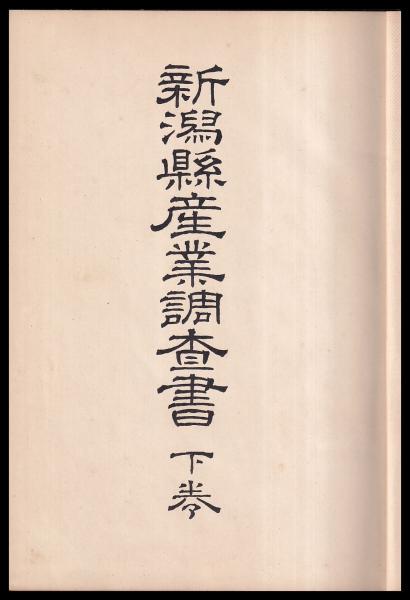 新潟縣産業調査書 下巻